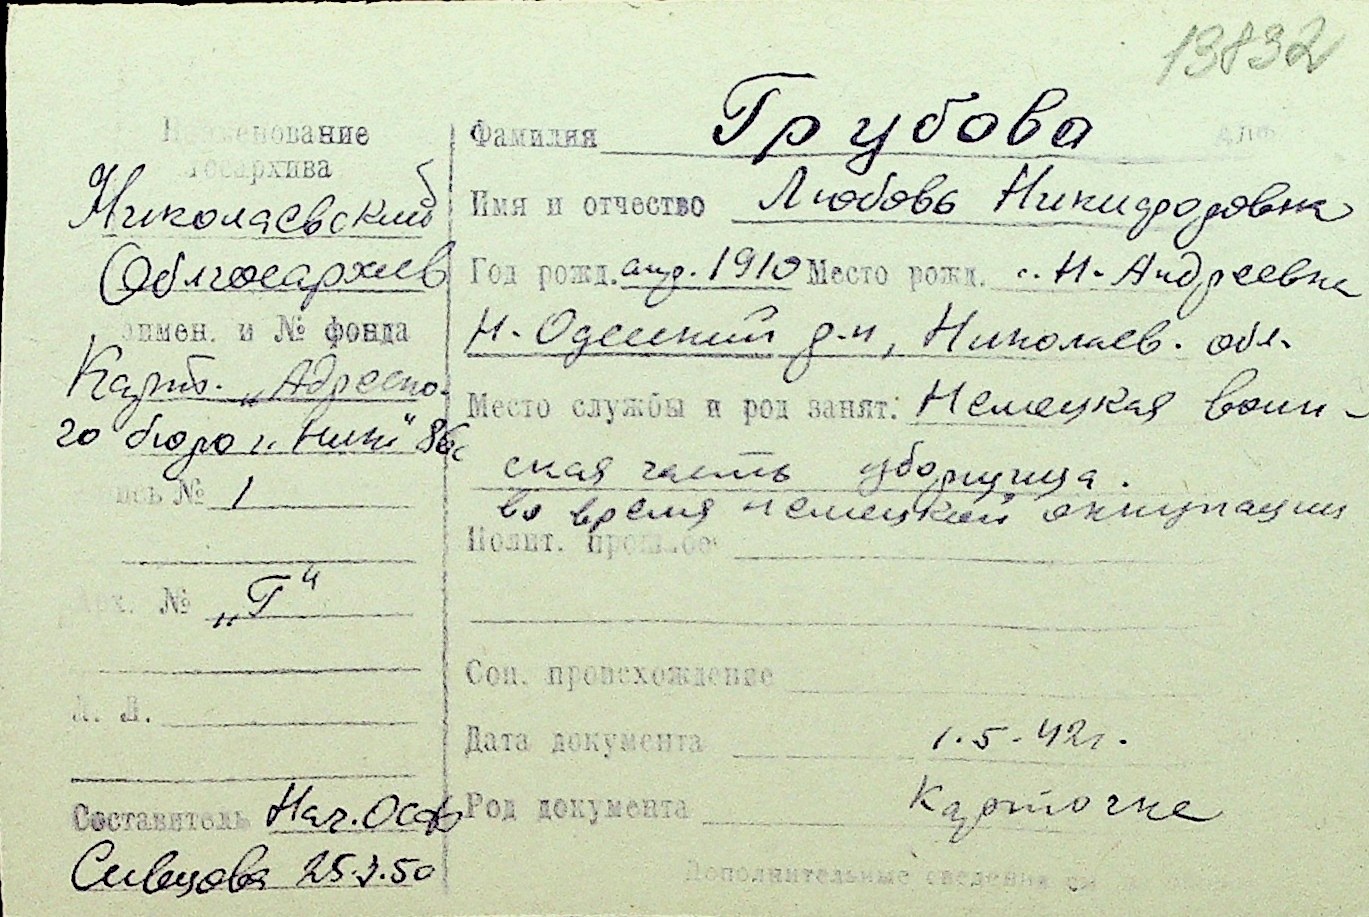 13832
Наименование
госархива
Николаевский
Облгосархив
Наимен. и № фонда
Карт. „Адресно-
го бюро г. Ник"
Опись № 1
Арх. № „Г"
Л. Л.
Составитель Нач. ОСФ
Сивцова 25.3.50
Фамилия Грубова
Имя и отчество Любовь Никифоровна
Год рожд. апр. 1910 Место рожд. с. Н-Андреевка
Н-Одесский р-н, Николаев. обл.
Место службы и род занят. Немецкая воин-
ская часть уборщица.
во время немецкой оккупации
Полит. прошлое
Соц. происхождение
Дата документа 1.5.42г.
Род документа Карточка
Дополнительные сведения см. на